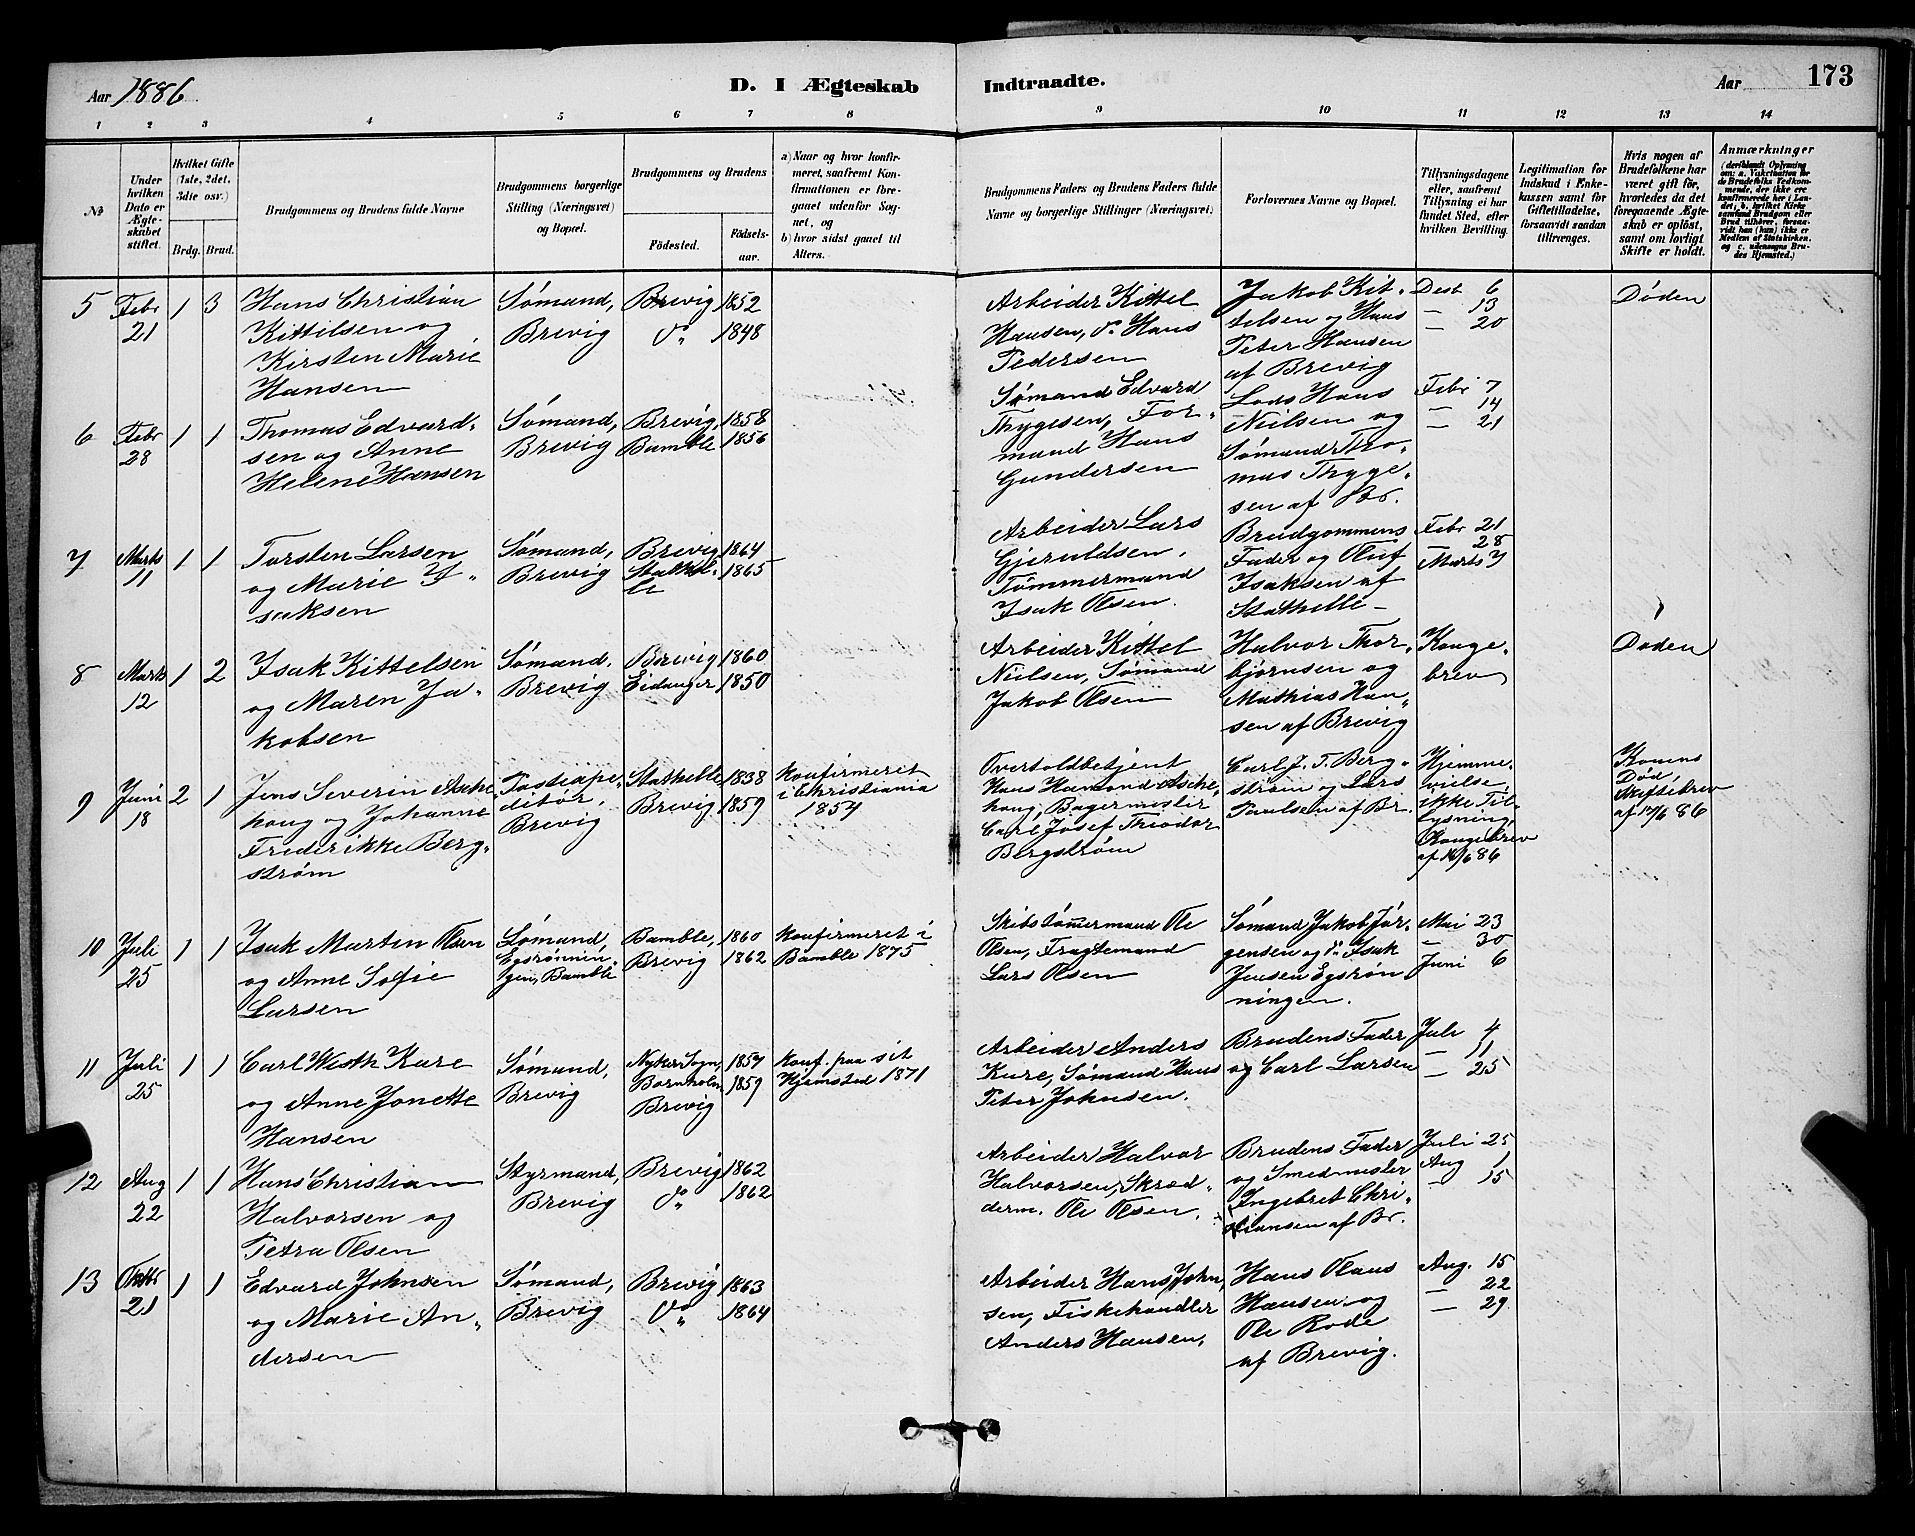 Aar 1886.
D. I Ægteskab
Indtraadte.
Aar 173
1 2 3 4 5 6 7 8 9 10 11 12 13 14
No
Under hvilken Dato er Ægteskabet stiftet.
Hvilket Gifte (1ste, 2det, 3die osv.)
Brdg. Brud.
Brudgommens og Brudens fulde Navne
Brudgommens borgerlige Stilling (Næringsvei) og Bopæl.
Brudgommens og Brudens
Fødested.
Fødsels-aar.
a) Naar og hvor konfirmeret, saafremt Konfirmationen er foregaaet udenfor Sognet, og
b) hvor sidst gaaet til Alters.
Brudgommens Faders og Brudens Faders fulde Navne og borgerlige Stillinger (Næringsvei)
Forlovernes Navne og Bopæl.
Tillysningsdagene eller, saafremt Tillysning ei har fundet Sted, efter hvilken Bevilling.
Legitimation for Indskud i Enkekassen samt for Giftetilladelse, forsaavidt saadan tiltrænges.
Hvis nogen af Brudefolkene har været gift før, hvorledes da det foregaaende Ægteskab er opløst, samt om lovligt Skifte er holdt.
Anmærkninger
(deriblandt Oplysning om: a. Vakcination for de Brudefolks Vedkommende, der ikke ere konfirmerede her i Landet; b. hvilket Kirkesamfund Brudgom eller Brud tilhører, forsaavidt han (hun) ikke er Medlem af Statskirken, og c. udensogns Brudes Hjemsted.)
5 Febr 21 1 3
Hans Christian
Kittilsen og
Kirsten Marie
Hansen
Sømand,
Brevig
Brevig 1852
do 1848
Arbeider Kittel
Hansen, do Hans
Pedersen
Jakob Kit-
telsen og Hans
Peter Hansen
af Brevig
6
— 13
— 20
Døden
6 Febr 28 1 1
Thomas Edvard-
sen og Anne
Helene Hansen
Sømand,
Brevig
Brevig, 1858
Bamble 1856
Sømand Edvard
Thygesen, For-
mand Hans
Gundersen
Lods Hans
Nielsen og
Sømand Tho-
mas Thyge-
sen af Br.
Febr 7
— 14
— 21
7 Marts 11 1 1
Torsten Larsen
og Marie I-
saksen
Sømand,
Brevig
Brevig 1864
Stathel- 1865
le
Arbeider Lars
Gjeruldsen,
Tømmermand
Isak Olsen.
Brudgommens
Fader og Oluf
Isaksen af
Stathelle
Febr 21
28
Marts 7
8 Marts 12 1 2
Isak Kittelsen
og Maren Ja-
kobsen
Sømand.
Brevig
Brevig 1860
Eidanger 1850
Arbeider Kittel
Nielsen, Sømand
Jakob Olsen
Halvor Thor-
bjørnsen og
Mathias Han-
sen af Brevig
Konge-
brev
Døden
9 Juni 18 2 1
Jens Severin Asche-
houg og Johanne
Frederikke Berg-
strøm
Postexpe-
ditør,
Brevig
Stathelle 1838
Brevig 1859
Konfirmeret
i Christiania
1854
Overtoldbetjent
Hans Hamond Asche-
houg, Bagermester
Carl Josef Theodor
Bergstrøm
Carl J. T. Berg-
strøm og Lars
Paulsen af Br.
Hjemme-
vielse,
ikke Til-
lysning,
Kongebrev
af 16/6 86
Konens
Død,
Skiftebrev
af 15/6 86
10 Juli 25 1 1
Isak Martin Olsen
og Anne Sofie
Larsen
Sømand,
Egsrønnin-
gen, Bamble
Bamble, 1860
Brevig 1862
Konfirmeret i
Bamble 1875
Skibstømmermand Ole
Olsen, Fragtemand
Lars Olsen
Sømand Jakob Jør-
gensen og do Isak
Jensen Egsrøn-
ningen.
Mai 23
— 30
Juni 6
11 Juli 25 1 1
Carl Westh Kure
og Anne Jonette
Hansen
Sømand,
Brevig
Nyker Sogn, 1857
Bornholm 1859
Brevig
Konf. paa sit
Hjemsted 1871
Arbeider Anders
Kure, Sømand Hans
Peter Johnsen.
Brudens Fader
og Carl Larsen
Juli 4
— 11
— 25
12 Aug 22 1 1
Hans Christian
Halvorsen og
Petra Olsen
Styrmand,
Brevig
Brevig 1862
do 1862
Arbeider Halvor
Halvorsen, Skræd-
derm. Ole Olsen.
Brudens Fader
og Smedmester
Ingebret Chri-
stiansen af Br.
Juli 25
Aug 1
— 15
13 21 1 1
Edvard Johnsen
og Marie An-
dersen
Sømand,
Brevig
Brevig 1863
do 1864
Arbeider Hans John-
sen, Fiskehandler
Anders Hansen,
Hans Olaus
Hansen og
Ole Rode
af Brevig.
Aug. 15
— 22
— 29